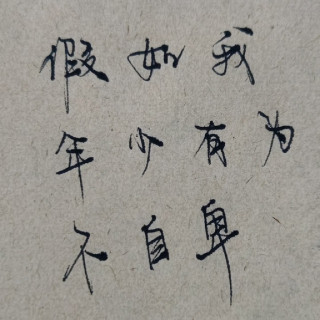 假如我
年少有为
不自卑